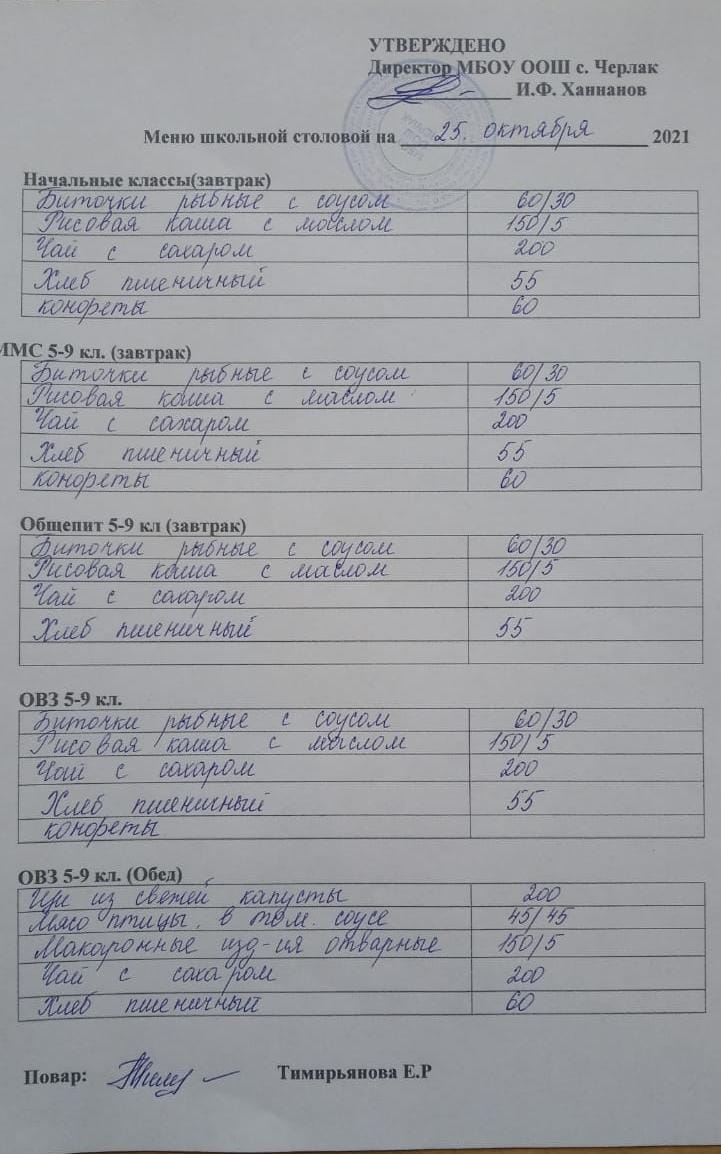 УТВЕРЖДЕНО
Директор МБОУ ООШ с. Черлак
И.Ф. Ханнанов
Меню школьной столовой на 25. октября 2021
Начальные классы(завтрак)
Биточки рыбные с соусом 60/30
Рисовая каша с маслом 150/5
Чай с сахаром 200
Хлеб пшеничный 55
конфеты 60
ММС 5-9 кл. (завтрак)
Биточки рыбные с соусом 60/30
Рисовая каша с маслом 150/5
Чай с сахаром 200
Хлеб пшеничный 55
конфеты 60
Общепит 5-9 кл (завтрак)
Биточки рыбные с соусом 60/30
Рисовая каша с маслом 150/5
Чай с сахаром 200
Хлеб пшеничный 55
ОВЗ 5-9 кл.
Биточки рыбные с соусом 60/30
Рисовая каша с маслом 150/5
Чай с сахаром 200
Хлеб пшеничный 55
конфеты
ОВЗ 5-9 кл. (Обед)
Щи из свежей капусты 200
Мясо птицы. в том. соусе 45/45
Макаронные изд-ия отварные 150/5
Чай с сахаром 200
Хлеб пшеничный 60
Повар: Тимирьянова Е.Р